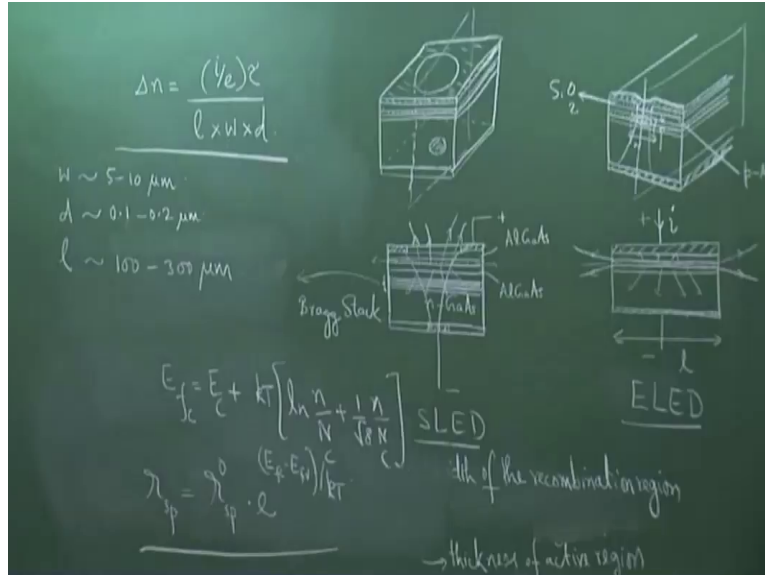 Δn = (i/e)τ
l × w × d
w ~ 5-10 μm
d ~ 0.1 - 0.2 μm
l ~ 100 - 300 μm
SiO2
+
AlGaAs
AlGaAs
n-GaAs
Bragg Stack
-
SLED
+ i
- l
ELED
E_fc = E_c + kT [ln n/N_c + 1/√8 n/N_c]
r_sp = r_sp^0 · e^(E_fc-E_fv)/kT
of the recombination region
→ thickness of active region